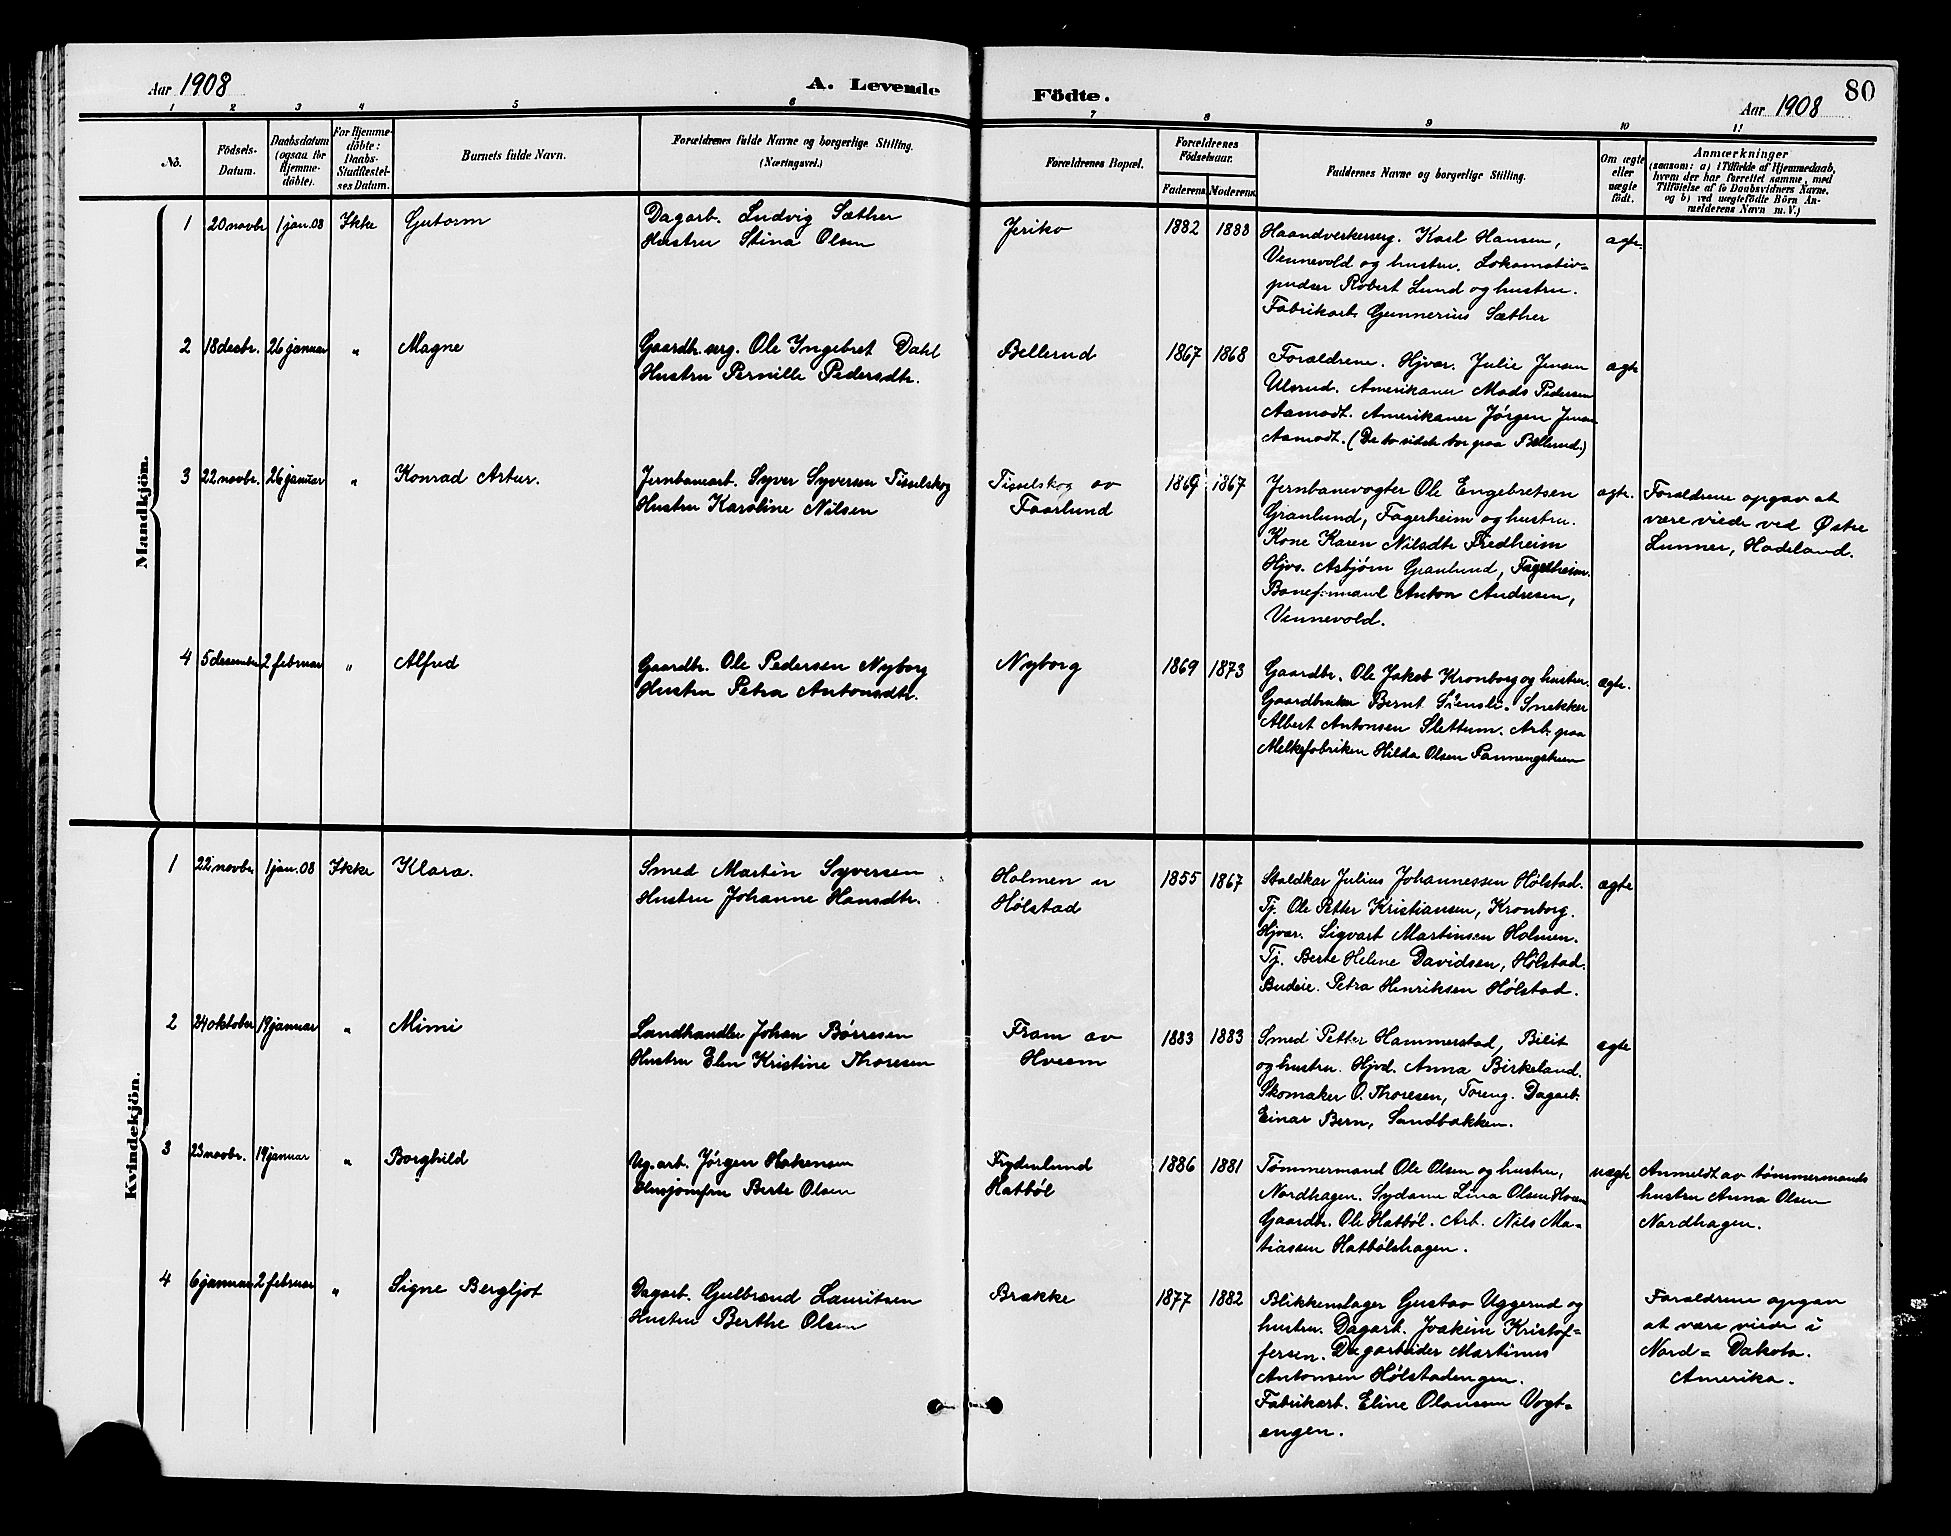 Aar 1908
A. Levende
Födte.
80
Aar 1908
1 2 3 4 5 6 7 8 9 10 11
No.
Födsels-
Datum.
Daabsdatum
(ogsaa for
Hjemme-
döbte).
For Hjemme-
döbte:
Daabs-
Stadfæstel-
ses Datum.
Barnets fulde Navn.
Forældrenes fulde Navne og borgerlige Stilling.
(Næringsvei.)
Forældrenes Bopæl.
Forældrenes
Födselsaar.
Faderens. Moderens.
Faddernes Navne og borgerlige Stilling.
Om ægte
eller
uægte
födt.
Anmærkninger
(saasom: a) i Tilfælde af Hjemmedaab,
hvem der har forrettet samme, med
Tilföielse af to Daabsvidners Navne,
og b) ved uægtefödte Börn An-
melderens Navn m. V.)
Mandkjön.
1 20 novbr 1 jan. 08 Ikke Gutorm
Dagarb. Ludvig Sæther
Hustru Stina Olsen
Jeriko
1882 1888
Haandverkersvg. Karl Hansen,
Vennevold og hustru. Lokomotiv=
pudser Robert Lund og hustru.
Fabrikarb. Gunnerius Sæther
ægte.
2 18 desbr. 26 januar " Magne
Gaardbr. Ole Ingebret Dahl
Hustru Pernille Pedersdtr.
Bellerud
1867 1868
Forældrene. Hjvar. Julie Jensen
Ulsrud. Amerikaner Mads Pedersen
Aamodt. Amerikaner Jørgen Jensen
Aamodt. (De to sidste bor paa Bellerud.)
ægte
3 22 novbr. 26 januar " Konrad Artur.
Jernbanearb. Syver Syversen Tisselskog
Hustru Karoline Nilsen
Tisselskog av
Faarlund
1869 1867
Jernbanevogter Ole Engebretsen
Granlund, Fagerheim og hustru.
Kone Karen Nilsdtr Fredheim
Hjvs. Asbjørn Granlund, Fagerheim.
Baneformand Anton Andresen,
Vennevold.
ægte.
Forældrene opgav at
være viede ved Østre
Lunner, Hadeland.
4 5 desember 2 februar " Alfred
Gaardbr. Ole Pedersen Nyborg
Hustru Petra Antonsdtr.
Nyborg
1869 1873
Gaardbr. Ole Jakob Kronborg og hustru.
Gaardbruker Bernt Stensli. Snekker
Albert Antonsen Slettum. Arb. paa
Melkefabriken Hilda Olsen
ægte.
Kvindekjön.
1 22 novbr 1 jan. 08 Ikke Klara.
Smed Martin Syversen
Hustru Johanne Hansdtr.
Holmen u
Hølstad
1855 1867
Staldkar Julius Johannessen Hølstad.
Tj. Ole Petter Kristiansen, Kronborg.
Hjvar. Sigvart Martinsen Holmen.
Tj. Berte Helene Davidsen, Hølstad.
Budeie. Petra Henriksen Hølstad.
ægte
2 24 oktober 19 januar " Mimi
Landhandler Johan Børresen
Hustru Elen Kristine Thoresen
Fram av
Hveem
1883 1883
Smed Petter Hammerstad, Bilit
og hustru. Hjvd. Anna Birkeland.
Skomaker O. Thoresen, Toreng. Dagarb.
Einar Bern, Sandbakken.
ægte
3 23 novbr. 19 januar " Borghild
Ug. arb. Jørgen Hakensen
Husjomfru Berte Olsen
Frydenlund
Hatbøl
1886 1881
Tømmermand Ole Olsen og hustru,
Nordhagen. Sydame Lina Olsen Hveem
Gaardbr. Ole Hatbøl. Arb. Nils Ma=
tiassen Hatbølshagen.
uægte
Anmeldt av tømmermands
hustru Anna Olsen
Nordhagen.
4 6 januar 2 februar " Signe Bergljot
Dagarb. Gulbrand Lauritsen
Hustru Berthe Olsen
Brække
1877 1882
Blikkenslager Gustav Uggerud og
hustru. Dagarb. Joakim Kristof=
fersen. Dagarbeider Martinus
Antonsen Hølstadengen.
Fabrikarb. Eline Olausen Vogt=
engen.
Forældrene opgav
at være viede i
Nord=Dakota.
Amerika.